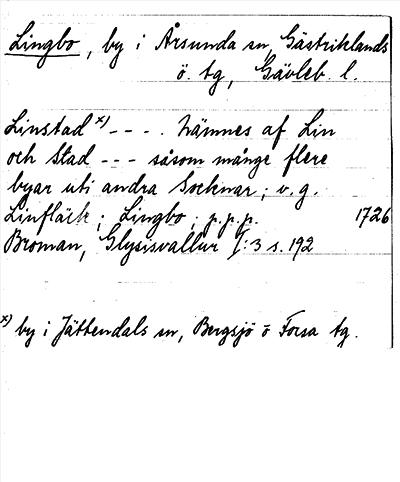 Lingbo, by i Årsunda sn, Gästriklands
ö. tg, Gävleb. l.
Linstad x) - - - . nämnes af Lin
och Stad - - - såsom månge flere
byar uti andra Socknar; v.g.
Linfläck; Lingbo; p.p.p. 1726
Broman, Glysisvallur I:3 s. 192
x) by i Jättendals sn, Bergsjö o Forsa tg.